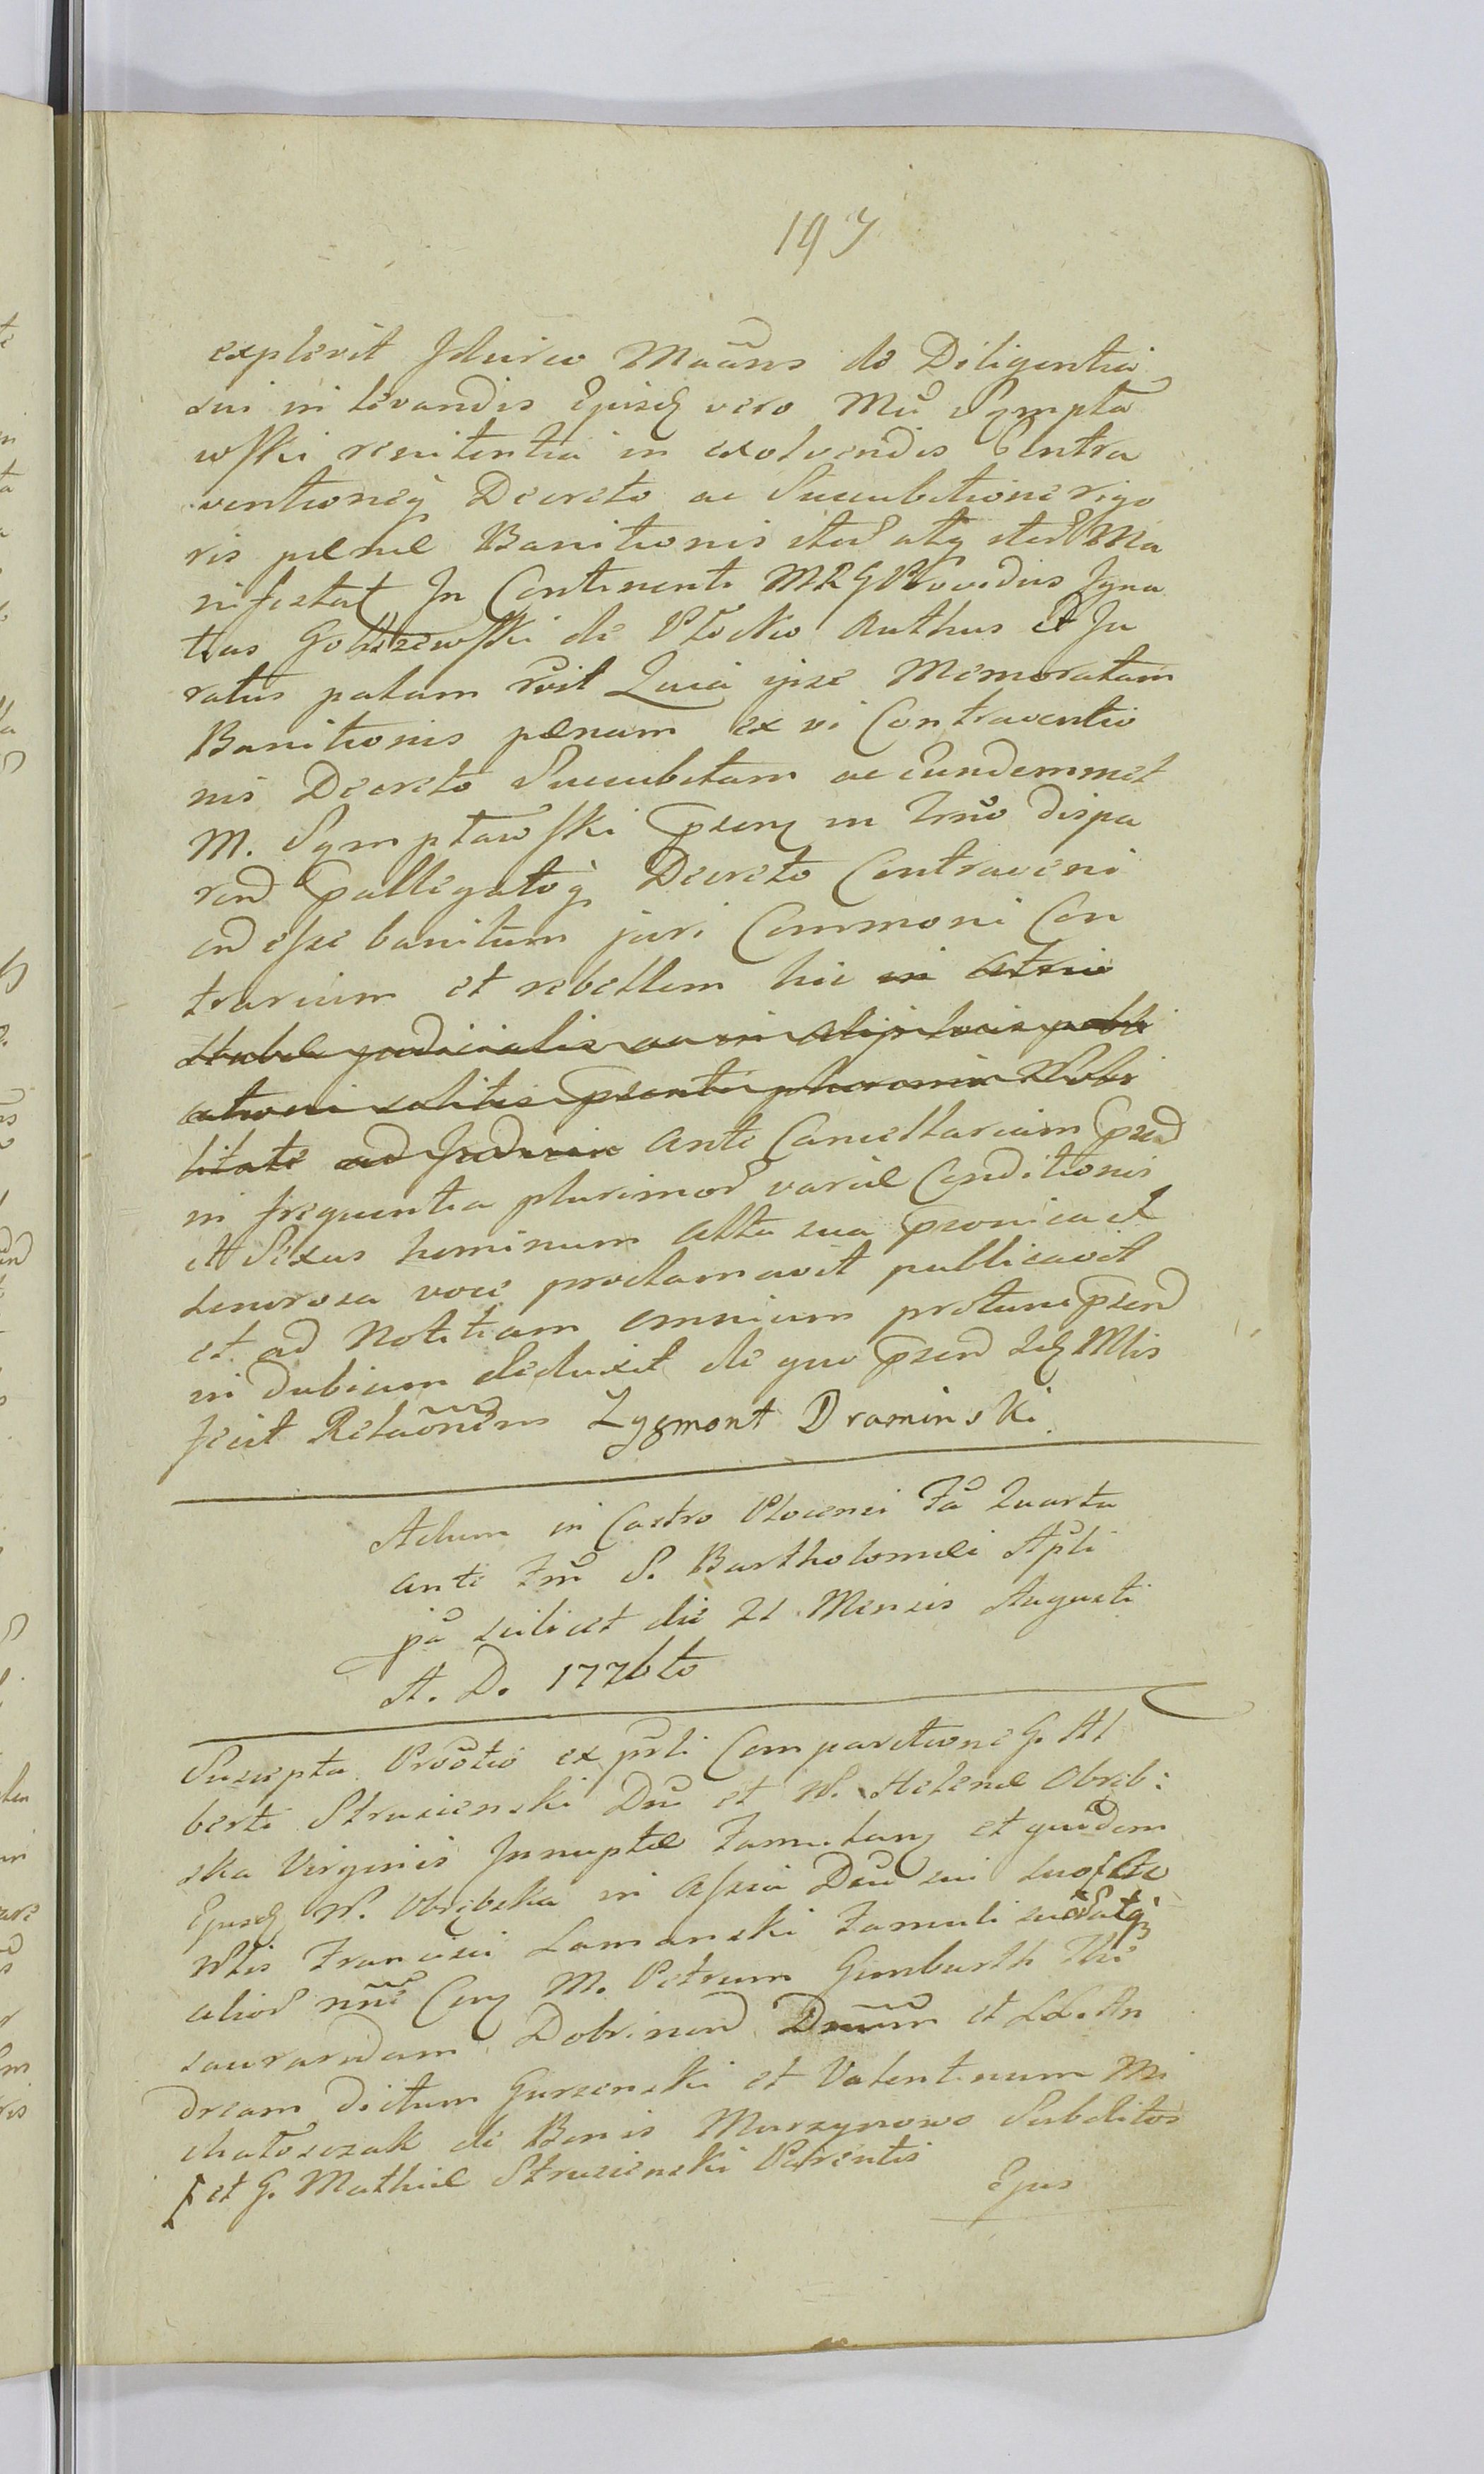 193
explevit Idcirco Maãns de Diligentia
sui in levandis Ejusq vero Mci Sympła
wski renitentia in exolvendis Contra
ventioneq Decreto ac Succubitione rigo
ris pænæ Banitionis iterᵈ atq iterᵈ Ma
nifestat In Continenti MRG Providus Igna
tius Goliszewski de Płocko Authus et Ju
ratus palam rcvit Quia ipse Memoratam
Banitionis pœnam ex vi Contraventio
nis Decreto Succubitam ac Eundemmet
M. Sympławski psenq in Tmno dispa
rend pallegatoq Decreto Contraveni
end esse banitum juri Commoni Con
trarium et rebellem hic in atrio
Stubæ judicialis ac in alijs locis publi
cationi solitis psente plurorum Nobi
litate ad Judicia ante Cancellariam psnd
in frequentia plurimorᵈ variæ Conditionis
et Sexus hominum alta sua psonica et
senorosa voce proclamavit publicavit
et ad notitiam omnium protunc psend
in dubiam deduxit de quo psend suq Mlis
fecit Relaõnẽm Zygmont Draminski
Actum in Castro Plocensi Fa Quarta
ante Fm S. Bartholomæi Apli
pa scilicet die 21 Mensis Augusti
A. D. 1776to
Suscepta Proötio ex psli Comparitione G. Al
berti Strusienski Dni et N. Helenæ Obrẹb:
ska Virginis Innuptæ Famulanq et quidem
Ejusdq N. Obrębska in Assia Dni sui suofcto
Nlis Francisci Lamanski Famuli suiᵈ atq
aliorᵈ nnẽ Cnq M. Petrum Gimbarth The
saurarudam Dobrinen Dnum et LL. An
dream dictum Gurzenski et Valentinum Mi
chałoszak de Bonis Murzynowo Subditos
et G. Mathiæ Strusienski Parentis
Ejus